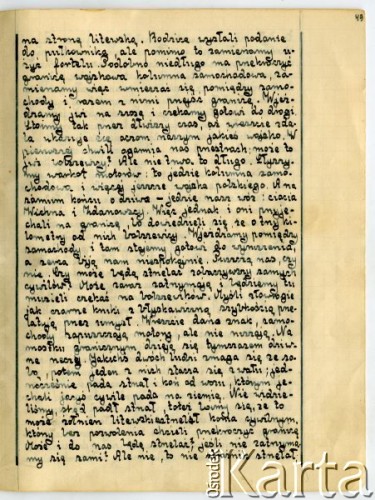 49
na stronę litewską. Rodzice wysłali podanie
do pułkownika, ale pomimo to zamierzamy u-
żyć fortelu. Podobno niedługo ma przekroczyć
granicę wojskowa kolumna samochodowa, za-
mierzamy więc wmieszać się pomiędzy samo-
chody i razem z nimi przejść granicę. Wjeż-
dżamy już na szosę i czekamy gotowi do drogi.
Stoimy tak przez dłuższy czas, aż wreszcie zda-
la ukazuje się oczom naszym jakieś wojsko. W
pierwszej chwili ogarnia nas przestrach: może to
już bolszewicy? Ale nie trwa to długo. Słyszy-
my warkot motorów: to jedzie kolumna samo-
chodowa i więcej jeszcze wojska polskiego. A na
samym końcu o dziwo – jedzie nasz wóz: ciocia
Michna i Adamowicz. Więc jednak i oni przyje-
chali na granicę, bo dowiedzieli się że o trzy ki-
lometry od nich bolszewicy. Wjeżdżamy pomiędzy
samochody i tam stajemy gotowi do wyruszenia,
a serca biją nam niespokojnie. Puszczą nas, czy
nie. Czy może będą strzelać zobaczywszy samych
cywilów? Może zaraz zatrzymają i będziemy tu
musieli czekać na bolszewików. Myśli złowrogie
jak czarne kruki z błyskawiczną szybkością prze-
latują przez umysł. Wreszcie dano znak, samo-
chody zapuszczają motory, ale nie ruszają. Na
mostku granicznym dzieją się tymczasem dziw-
ne rzeczy. Jakichś dwóch ludzi zmaga się ze so-
bą, potem jeden z nich stacza się z wału; jed-
nocześnie pada strzał i koń od wozu, którym je-
chali jacyś cywile pada na ziemię. Nie widzie-
liśmy, skąd padł strzał, toteż boimy się, że to
może żołnierz litewski zastrzelał konia cywilnym,
którzy bez pozwolenia chcieli przekroczyć granicę.
Może i do nas będą strzelać, jeśli nie zatrzyma-
my się sami? Ale nie, to nie strzelał
ośrodek
Karta